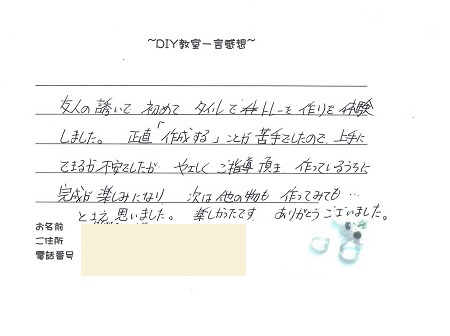 ~DIY教室一言感想~
友人の誘いで 初めて タイルで トレーを 作りを 体験
しました。 正直「作成する」ことが苦手でしたので、上手に
できるか不安でしたが やさしく ご指導頂き 作っているうちに
完成が 楽しみになり 次は他の物も 作ってみても…
と 思いました。 楽しかったです ありがとうございました。
お名前
ご住所
電話番号